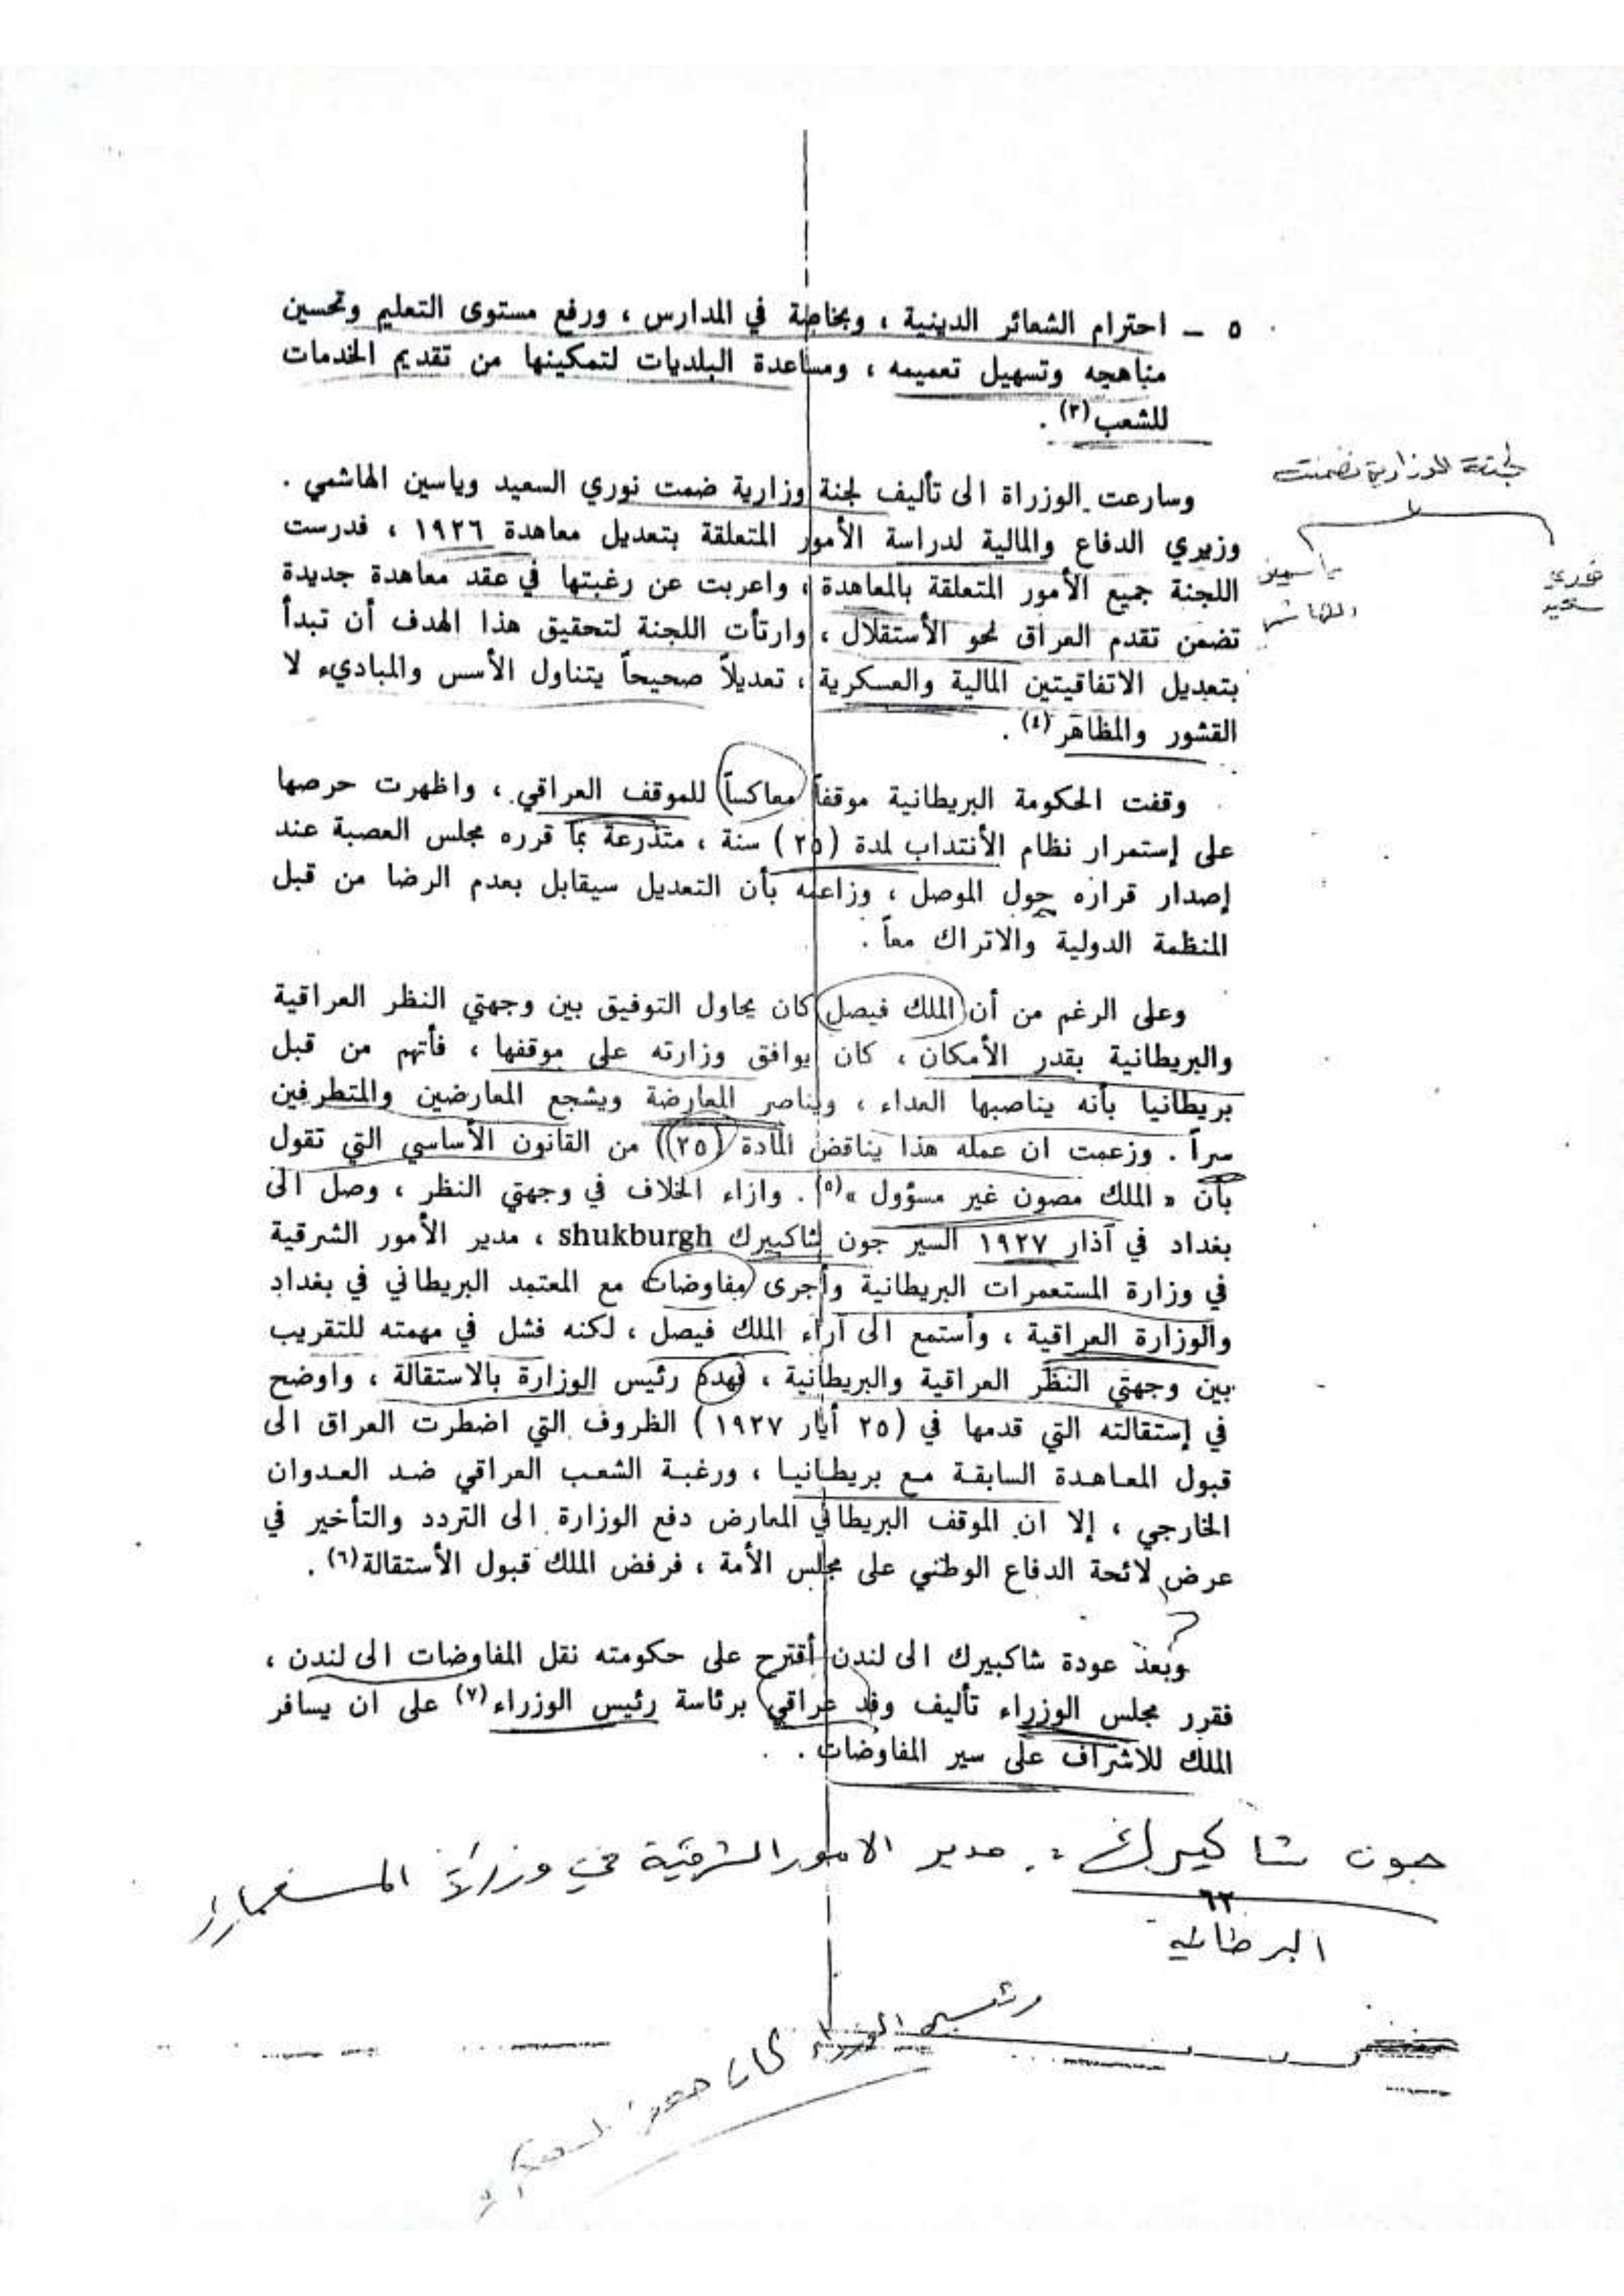 ٥ – احترام الشعائر الدينية ، وبخاصة في المدارس ، ورفع مستوى التعليم وتحسين
مناهجه وتسهيل تعميمه ، ومساعدة البلديات لتمكينها من تقديم الخدمات
للشعب(٣) .
لجنة الوزارية تضمنت
نوري سعيد
ياسين الهاشمي
وسارعت الوزراة الى تأليف لجنة وزارية ضمت نوري السعيد وياسين الهاشمي .
وزيري الدفاع والمالية لدراسة الأمور المتعلقة بتعديل معاهدة ١٩٢٦ ، فدرست
اللجنة جميع الأمور المتعلقة بالمعاهدة ، واعربت عن رغبتها في عقد معاهدة جديدة
تضمن تقدم العراق نحو الأستقلال ، وارتأت اللجنة لتحقيق هذا الهدف أن تبدأ
بتعديل الاتفاقيتين المالية والعسكرية ، تعديلاً صحيحاً يتناول الأسس والمباديء لا
القشور والمظاهر(٤) .
وقفت الحكومة البريطانية موقفاً معاكساً للموقف العراقي ، واظهرت حرصها
على إستمرار نظام الأنتداب لمدة (٢٥) سنة ، متذرعة بما قرره مجلس العصبة عند
إصدار قراره حول الموصل ، وزاعمه بأن التعديل سيقابل بعدم الرضا من قبل
المنظمة الدولية والاتراك معاً .
وعلى الرغم من أن الملك فيصل كان يحاول التوفيق بين وجهتي النظر العراقية
والبريطانية بقدر الأمكان ، كان يوافق وزارته على موقفها ، فأتهم من قبل
بريطانيا بأنه يناصبها العداء ، ويناصر المعارضة ويشجع المعارضين والمتطرفين
سراً . وزعمت ان عمله هذا يناقض المادة (٢٥) من القانون الأساسي التي تقول
بأن « الملك مصون غير مسؤول »(٥) . وازاء الخلاف في وجهتي النظر ، وصل الى
بغداد في آذار ١٩٢٧ السير جون شاكبيرك shukburgh ، مدير الأمور الشرقية
في وزارة المستعمرات البريطانية وأجرى مفاوضات مع المعتمد البريطاني في بغداد
والوزارة العراقية ، وأستمع الى آراء الملك فيصل ، لكنه فشل في مهمته للتقريب
بين وجهتي النظر العراقية والبريطانية ، فهدد رئيس الوزارة بالاستقالة ، واوضح
في إستقالته التي قدمها في (٢٥ أيار ١٩٢٧) الظروف التي اضطرت العراق الى
قبول المعاهدة السابقة مع بريطانيا ، ورغبة الشعب العراقي ضد العدوان
الخارجي ، إلا ان الموقف البريطاني المعارض دفع الوزارة الى التردد والتأخير في
عرض لائحة الدفاع الوطني على مجلس الأمة ، فرفض الملك قبول الأستقالة(٦) .
وبعد عودة شاكبيرك الى لندن أقترح على حكومته نقل المفاوضات الى لندن ،
فقرر مجلس الوزراء تأليف وفد عراقي برئاسة رئيس الوزراء(٧) على ان يسافر
الملك للاشراف على سير المفاوضات .
جون شاكبيرك : مدير الامور الشرقية في وزارة المستعمرات
٦٢
البرطانيه
رئيس الوزراء كان جعفر العسكري